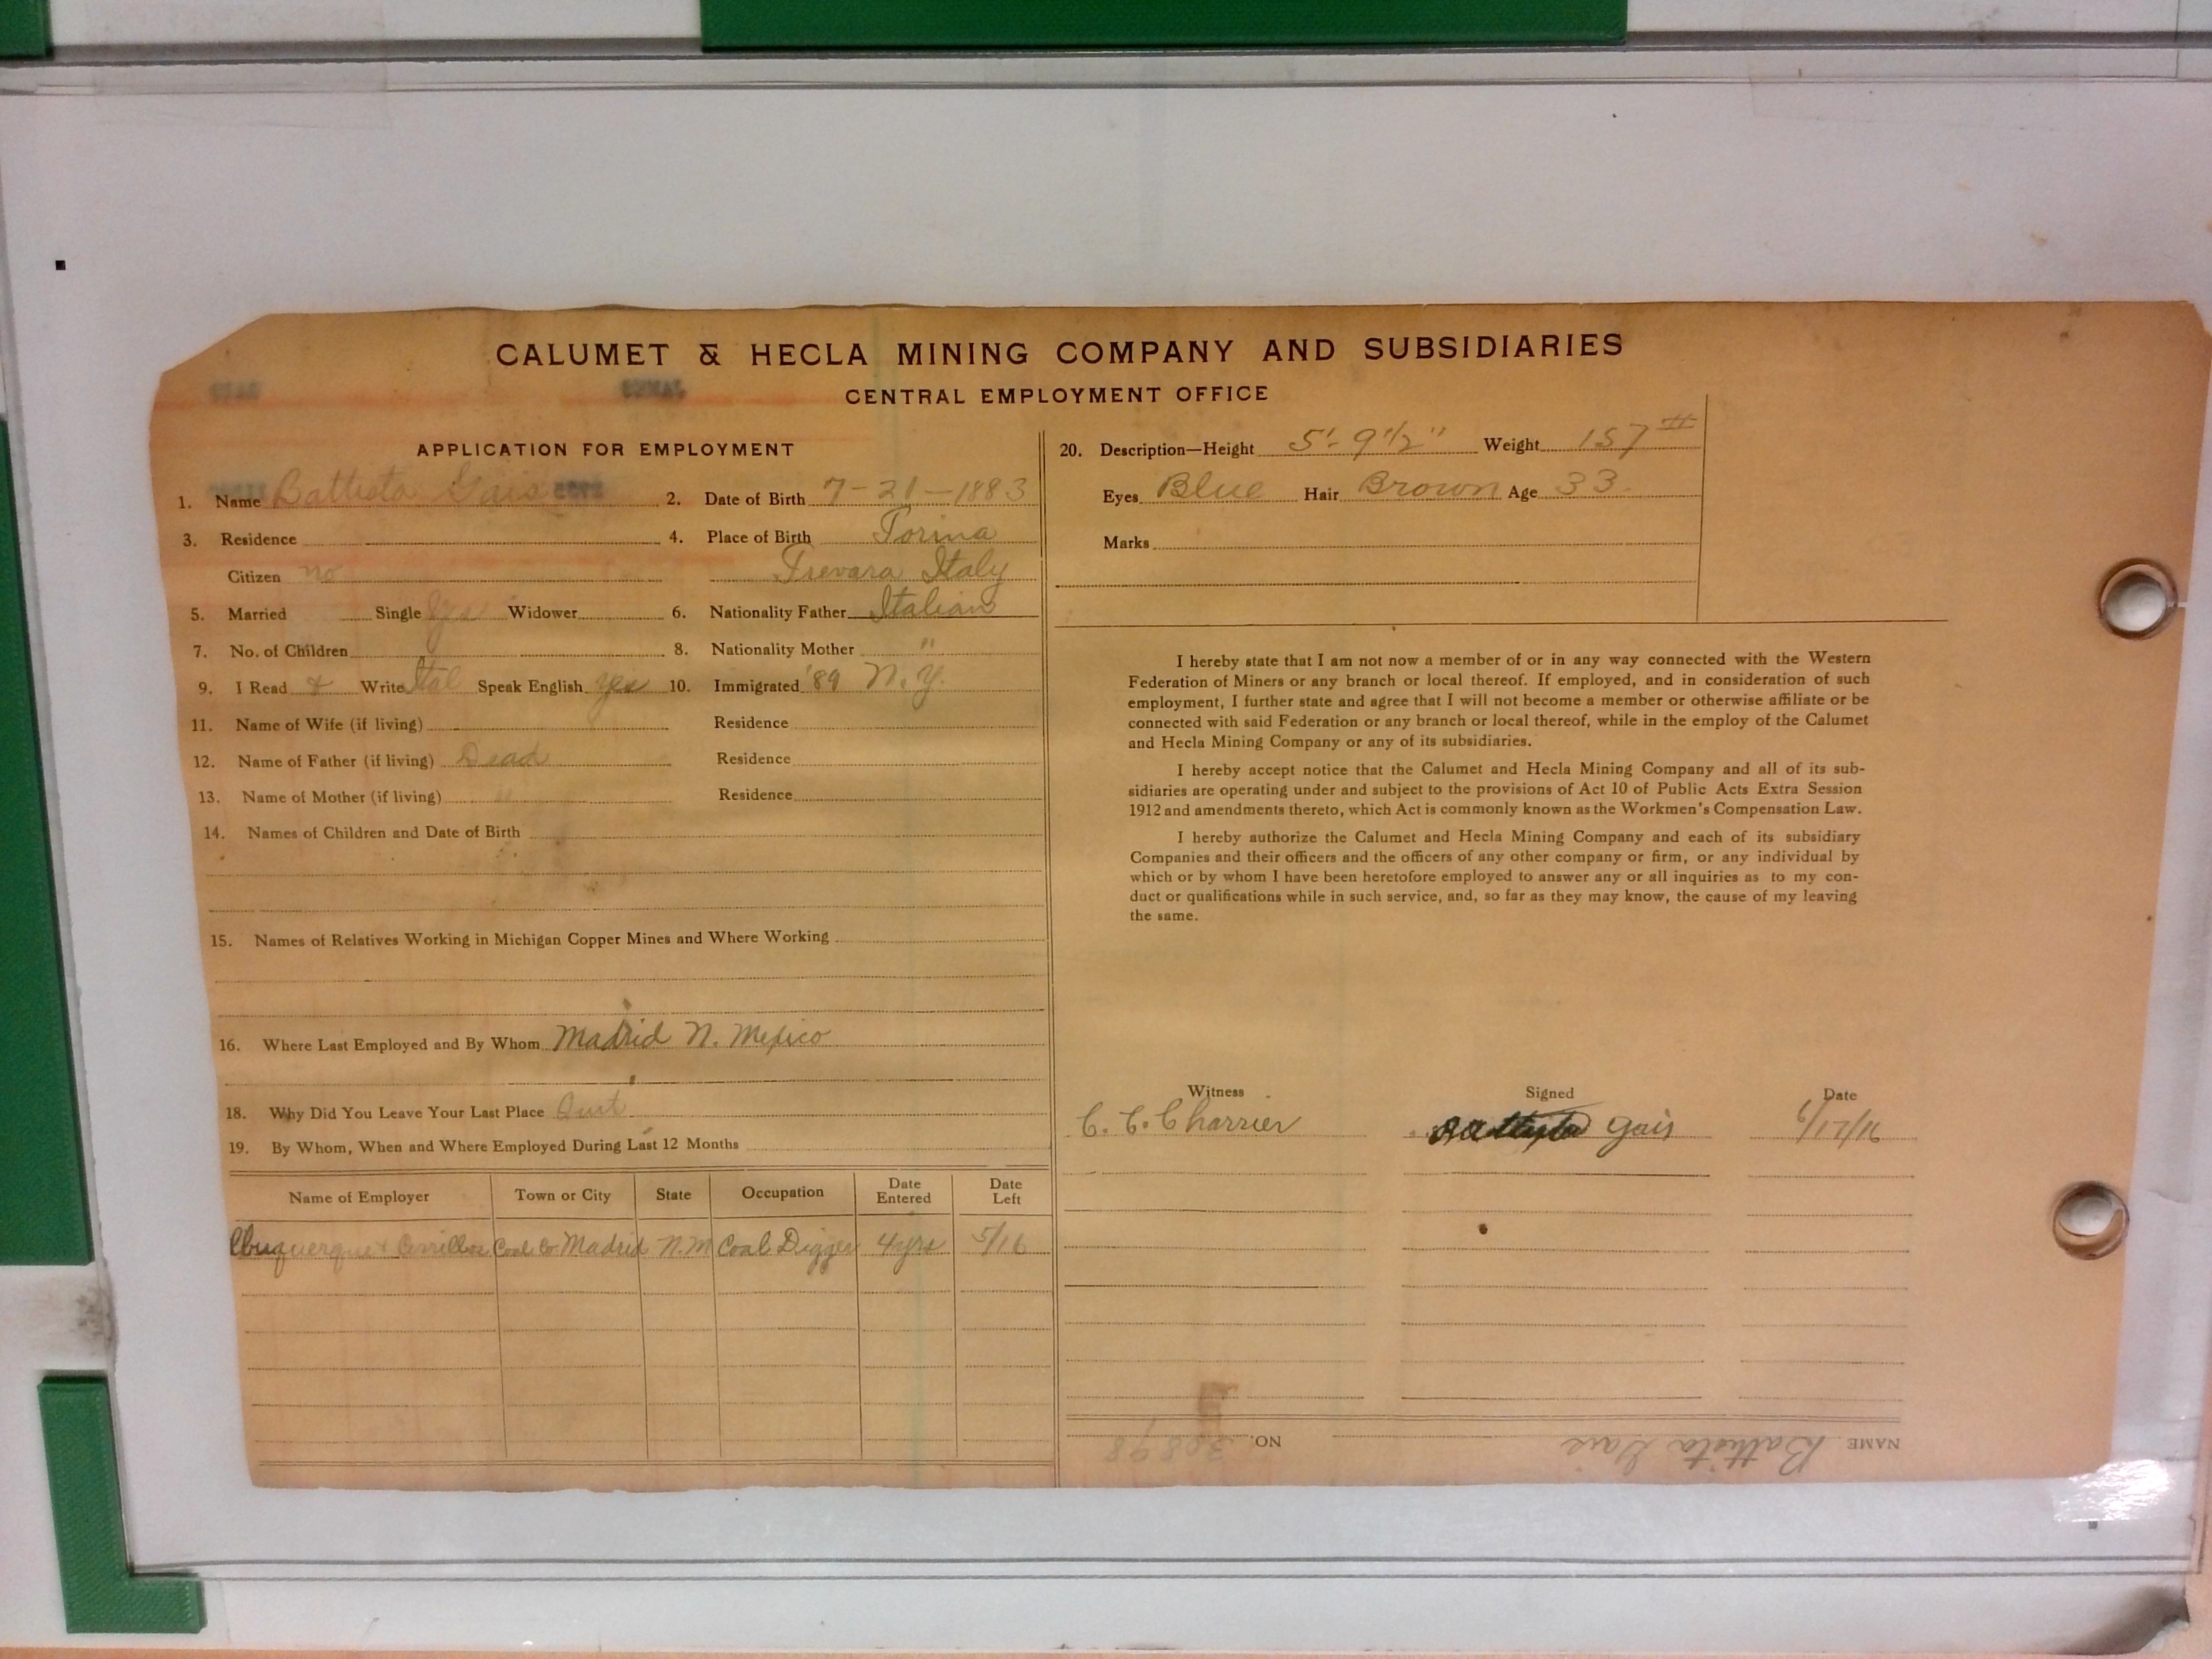 CALUMET & HECLA MINING COMPANY AND SUBSIDIARIES
CENTRAL EMPLOYMENT OFFICE
APPLICATION FOR EMPLOYMENT
1. Name Battista Gais 2. Date of Birth 7-21-1883
3. Residence 4. Place of Birth Torina
Citizen no Trevara Italy
5. Married Single Yes Widower 6. Nationality Father Italian
7. No. of Children 8. Nationality Mother "
9. I Read & Write Ital Speak English Yes 10. Immigrated '89 N.Y.
11. Name of Wife (if living) Residence
12. Name of Father (if living) Dead Residence
13. Name of Mother (if living) " Residence
14. Names of Children and Date of Birth
15. Names of Relatives Working in Michigan Copper Mines and Where Working
16. Where Last Employed and By Whom Madrid N. Mexico
18. Why Did You Leave Your Last Place Quit
19. By Whom, When and Where Employed During Last 12 Months
Name of Employer Town or City State Occupation Date Entered Date Left
Albuquerque & Cerrillos Coal Co. Madrid N.M Coal Digger 4 yrs 5/16
20. Description—Height 5'-9 1/2" Weight 157 #
Eyes Blue Hair Brown Age 33
Marks
I hereby state that I am not now a member of or in any way connected with the Western
Federation of Miners or any branch or local thereof. If employed, and in consideration of such
employment, I further state and agree that I will not become a member or otherwise affiliate or be
connected with said Federation or any branch or local thereof, while in the employ of the Calumet
and Hecla Mining Company or any of its subsidiaries.
I hereby accept notice that the Calumet and Hecla Mining Company and all of its sub-
sidiaries are operating under and subject to the provisions of Act 10 of Public Acts Extra Session
1912 and amendments thereto, which Act is commonly known as the Workmen's Compensation Law.
I hereby authorize the Calumet and Hecla Mining Company and each of its subsidiary
Companies and their officers and the officers of any other company or firm, or any individual by
which or by whom I have been heretofore employed to answer any or all inquiries as to my con-
duct or qualifications while in such service, and, so far as they may know, the cause of my leaving
the same.
Witness Signed Date
C. C. Charrier Battista Gais 6/17/16
NAME Battista Gais NO. 30898